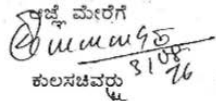 ಆಜ್ಞೆ ಮೇರೆಗೆ
31/08
26
ಕುಲಸಚಿವರು